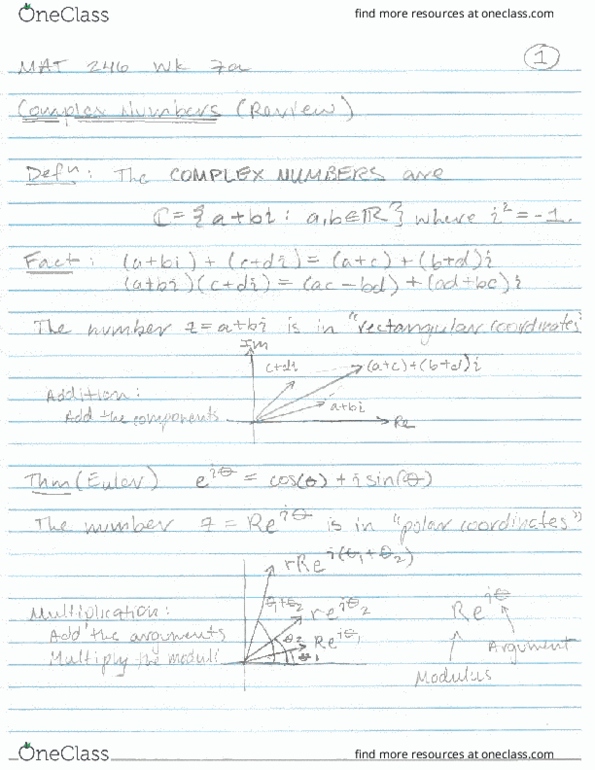 OneClass
find more resources at oneclass.com
1
MAT 246 Wk 7a
Complex Numbers (Review)
Defn: The COMPLEX NUMBERS are
ℂ = { a+bi : a,b∈ℝ } where i² = -1.
Fact: (a+bi) + (c+di) = (a+c) + (b+d)i
(a+bi)(c+di) = (ac-bd) + (ad+bc)i
The number z = a+bi is in "rectangular coordinates"
Im
c+di
(a+c)+(b+d)i
Addition:
Add the components
a+bi
Re
Thm (Euler) e^{iθ} = cos(θ) + i sin(θ)
The number z = Re^{iθ} is in "polar coordinates"
rRe^{i(θ₁+θ₂)}
Multiplication:
Add the arguments
Multiply the moduli
θ₁+θ₂
re^{iθ₂}
θ₂
Re^{iθ₁}
θ₁
Re^{iθ}
Argument
Modulus
OneClass
find more resources at oneclass.com